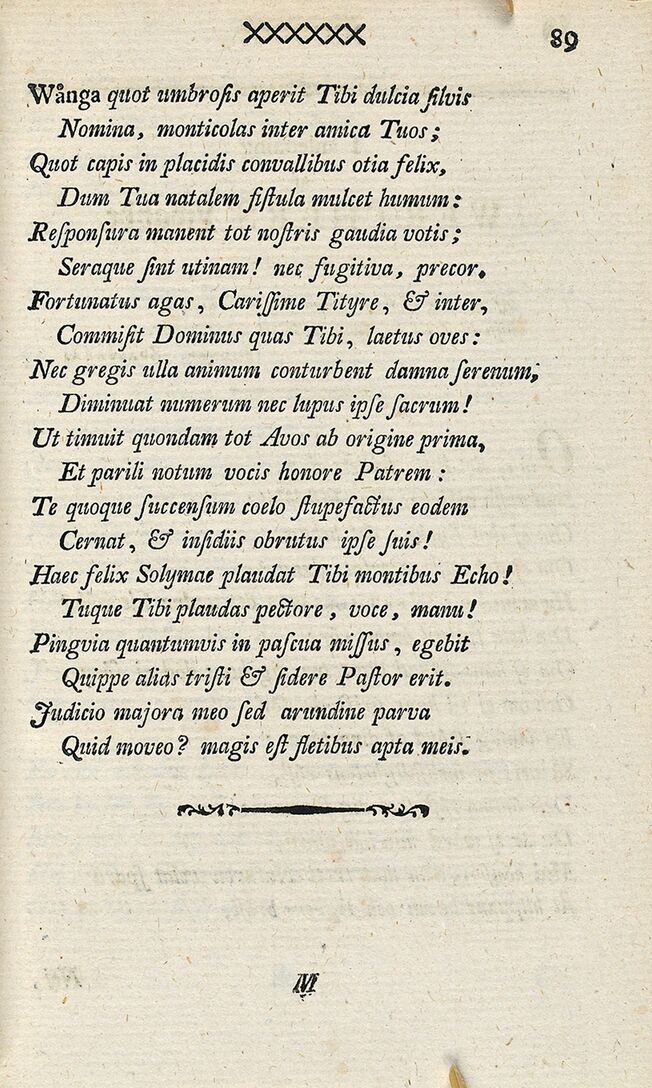 XXXXXX 89
Wånga quot umbroſis aperit Tibi dulcia ſilvis
Nomina, monticolas inter amica Tuos;
Quot capis in placidis convallibus otia felix,
Dum Tua natalem fiſtula mulcet humum:
Reſponſura manent tot noſtris gaudia votis;
Seraque ſint utinam! nec fugitiva, precor.
Fortunatus agas, Cariſſime Tityre, & inter,
Commiſit Dominus quas Tibi, laetus oves:
Nec gregis ulla animum conturbent damna ſerenum;
Diminuat numerum nec lupus ipſe ſacrum!
Ut timuit quondam tot Avos ab origine prima,
Et parili notum vocis honore Patrem:
Te quoque ſuccenſum coelo ſtupefactus eodem
Cernat, & inſidiis obrutus ipſe ſuis!
Haec felix Solymae plaudat Tibi montibus Echo!
Tuque Tibi plaudas pectore, voce, manu!
Pingvia quantumvis in paſcua miſſus, egebit
Quippe alias triſti & ſidere Paſtor erit.
Judicio majora meo ſed arundine parva
Quid moveo? magis eſt fletibus apta meis.
M